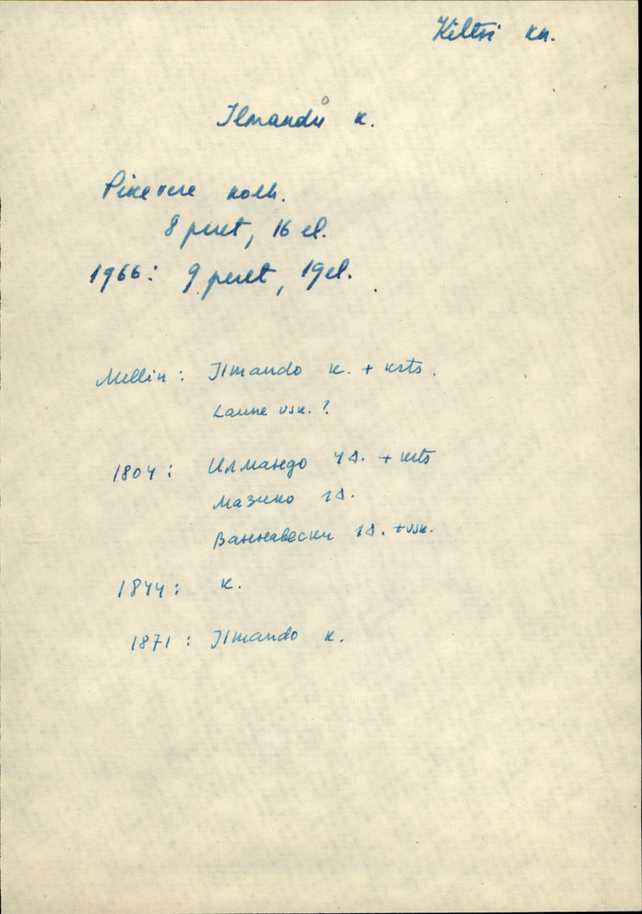 Kiltsi kn.
Ilmandu k.
Pikevere kolh.
8 peret, 16 el.
1966: 9 peret, 19 el.
Mellin: Ilmando k. + krts.
Laune vsk.?
1804: Илмандо 4 д. + krts
Мазико 1 д.
Ваннавески 1 д. + vsk.
1844: k.
1871: Ilmando k.